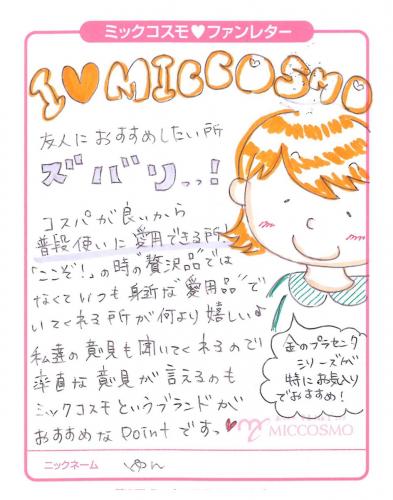 ミックコスモ♥ファンレター
I♥MICCOSMO
友人におすすめしたい所
ズバリっっ!
コスパが良いから
普段使いに愛用できる所!
"ここぞ!"の時の"贅沢品"では
なくていつも身近な"愛用品"で
いてくれる所が何より嬉しい♪
私達の意見も聞いてくれるので
率直な意見が言えるのも
ミックコスモというブランドが
おすすめなpointですっ♥
金のプラセンタ
シリーズが
特にお気入り
でおすすめ!
MICCOSMO
ニックネーム